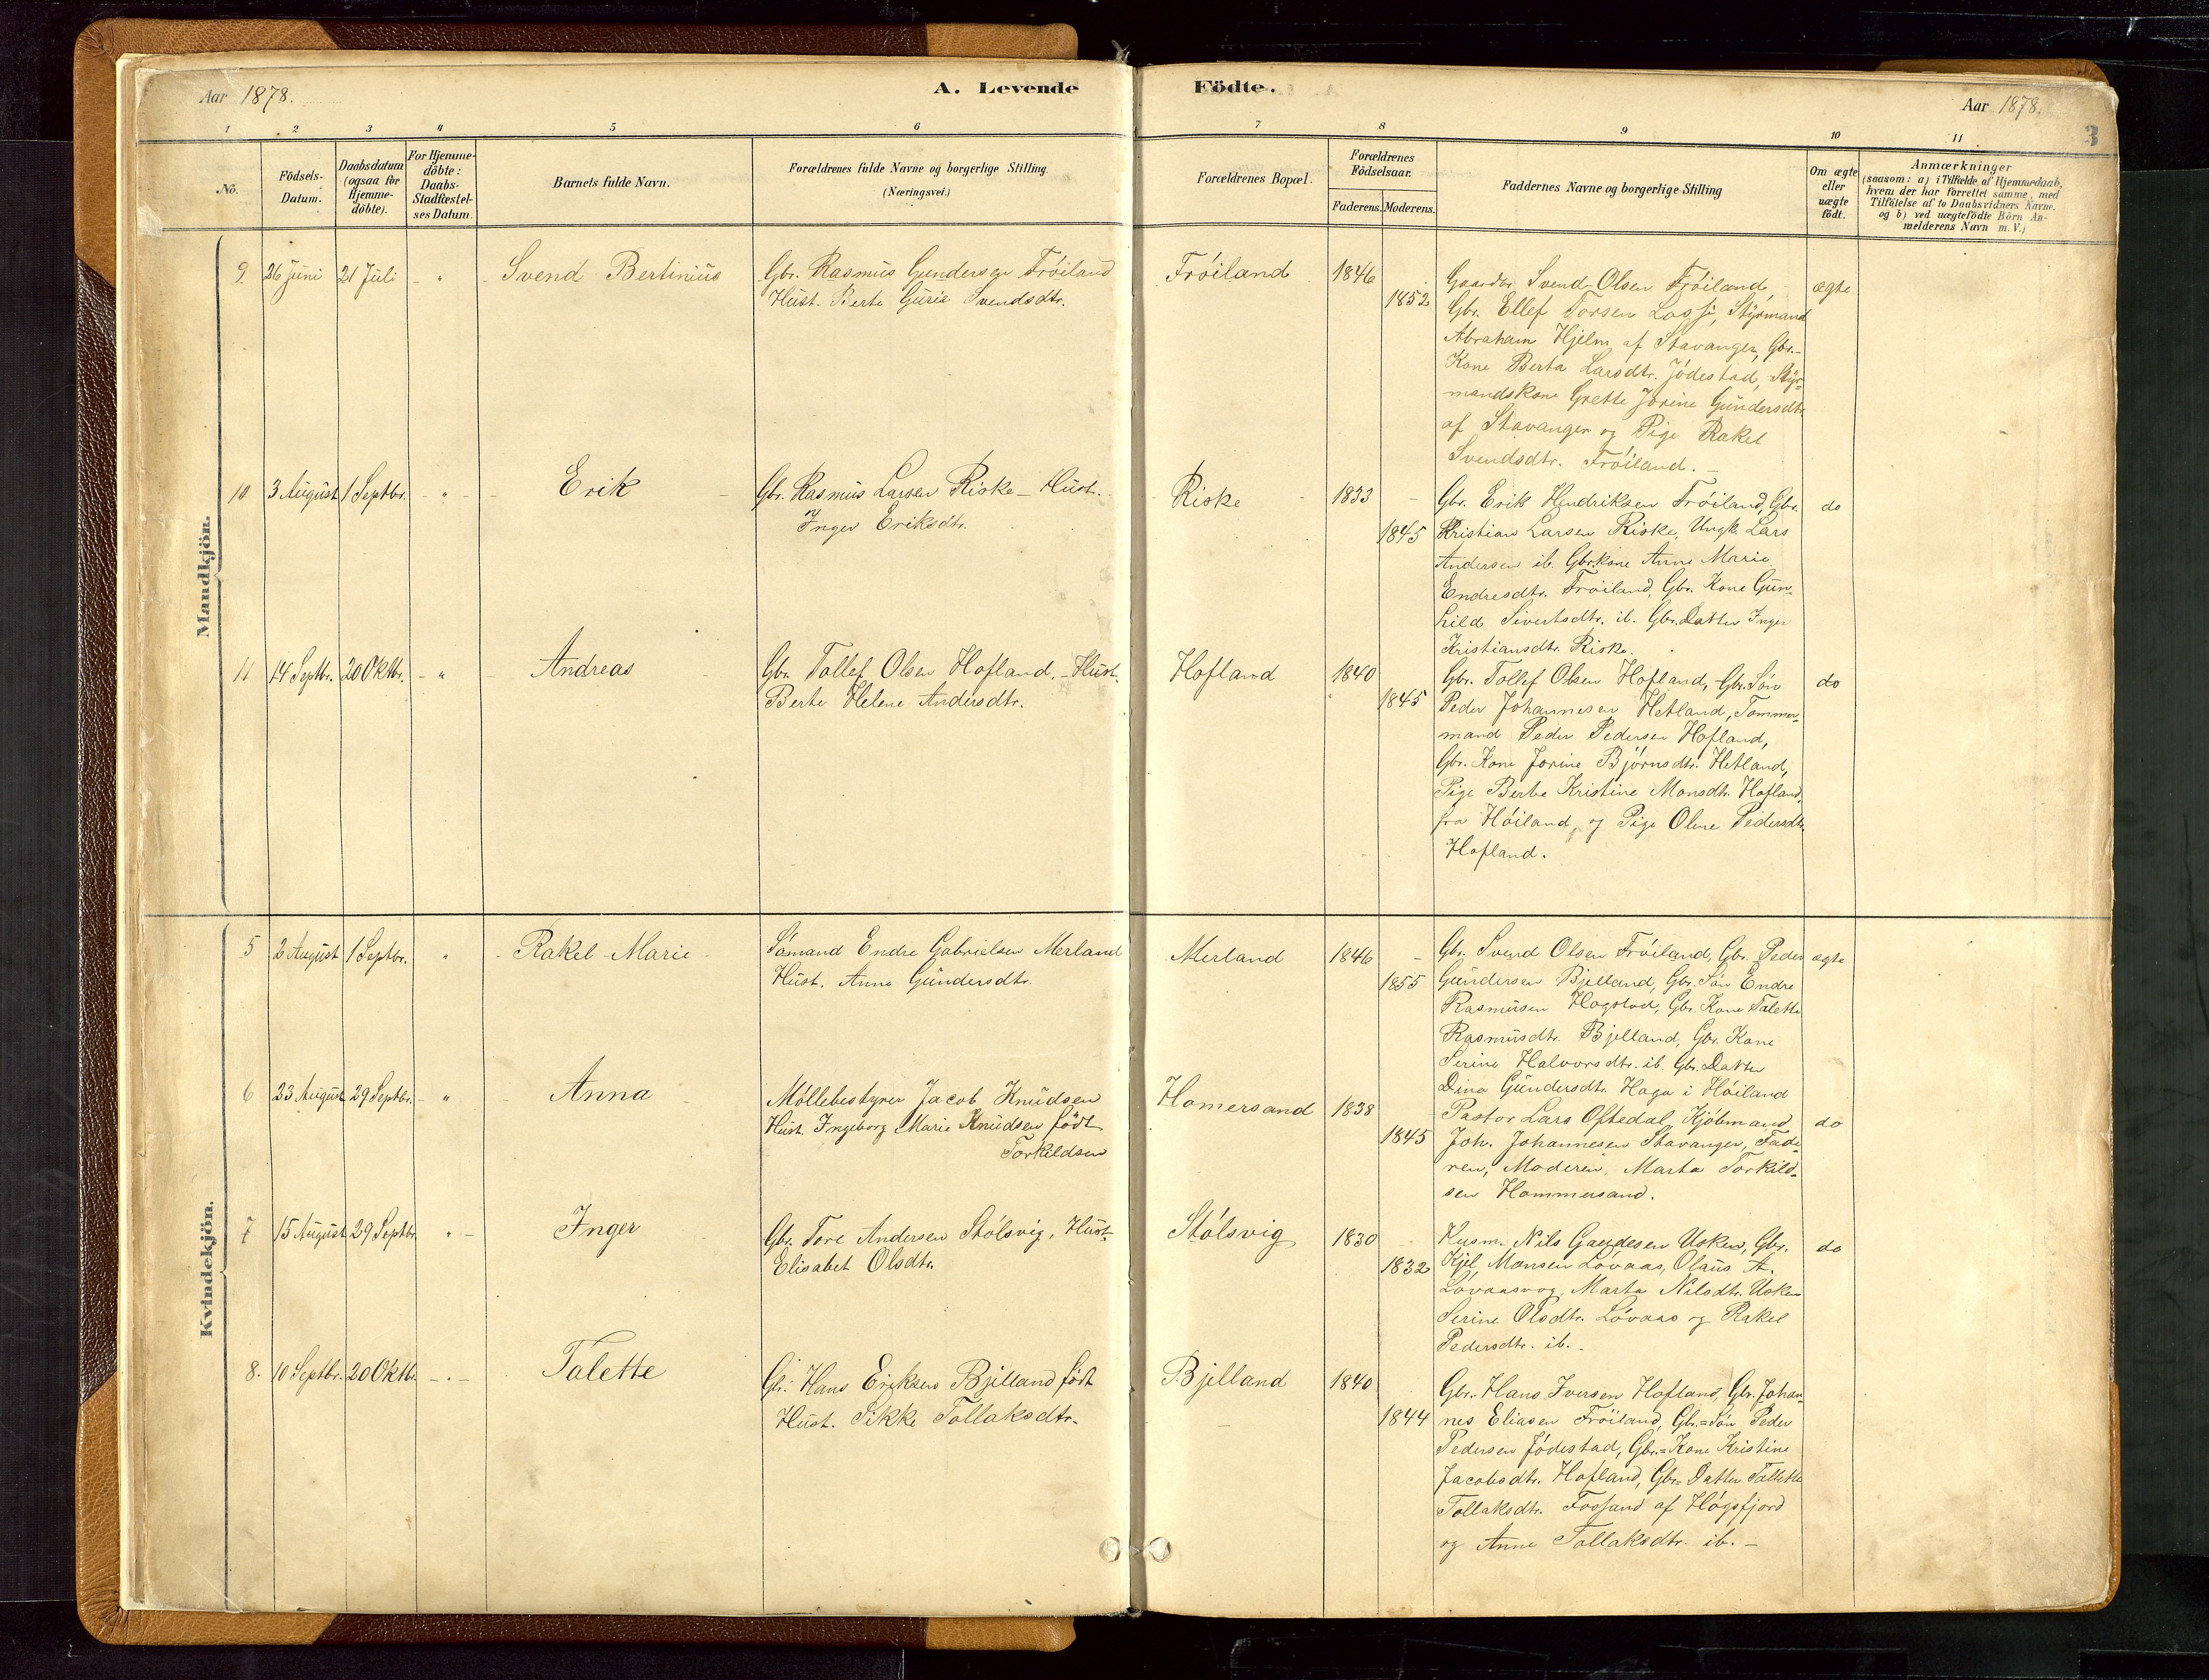 Aar 1878.
A. Levende Födte.
Aar 1878.
3
1 2 3 4 5 6 7 8 9 10 11
No.
Födsels-
Datum.
Daabsdatum
(ogsaa for
Hjemme-
döbte).
For Hjemme-
döbte:
Daabs-
Stadfæstel-
ses Datum.
Barnets fulde Navn.
Forældrenes fulde Navne og borgerlige Stilling.
(Næringsvei.)
Forældrenes Bopæl.
Forældrenes
Födselsaar.
Faderens. Moderens.
Faddernes Navne og borgerlige Stilling
Om ægte
eller
uægte
födt.
Anmærkninger
(saasom: a) i Tilfælde af Hjemmedaab,
hvem der har forrettet samme, med
Tilföielse af to Daabsvidners Navne.
og b) ved uægtefödte Börn An-
melderens Navn m. V.)
Mandkjön.
9. 26 Juni 21 Juli - " - Svend Bertinius
Gbr. Rasmus Gundersen Fröiland
Hust. Berte Gurie Svendsdtr.
Fröiland 1846
1852
Gaardbr. Svend Olsen Fröiland,
Gbr. Ellef Torsen Styrmand
Abraham Hjelm af Stavanger, Gbr.-
Kone Berta Larsdtr. Jödestad, Styr-
mandskone Grette Jorine Gundersdtr.
af Stavanger og Pige Rakel
Svendsdtr. Fröiland. -
ægte
10 3 August 1 Septbr. - " - Erik
Gbr. Rasmus Larsen Riske - Hust.
Inger Eriksdtr.
Riske 1833
1845
Gbr. Erik Hendriksen Fröiland, Gbr.
Kristian Larsen Riske, Ungk. Lars
Andersen ib. Gbr.kone Anne Marie
Endresdtr. Fröiland, Gbr. Kone Gun-
hild Sivertsdtr. ib. Gbr. Datter Inger
Kristiansdtr. Riske.
do
11 14 Septbr. 20 Oktbr. - " - Andreas
Gbr. Tollef Olsen Hofland, - Hust.
Berte Helene Andersdtr.
Hofland 1840
1845
Gbr. Tollef Olsen Hofland, Gbr. Sön
Peder Johannesen Hetland, Tommer-
mand Peder Pedersen Hofland,
Gbr. Kone Jorine Björnsdtr. Hetland,
Pige Berte Kristine Monsdtr. Hofland,
fra Höiland, og Pige Olene Pedersdtr.
Hofland.
do
Kvindekjön.
5 2 August 1 Septbr. " - Rakel Marie
Sömand Endre Gabrielsen Merland
Hust. Anne Gundersdtr.
Merland 1846
1855
Gbr. Svend Olsen Fröiland, Gbr. Peder
Gundersen Bjelland, Gbr. Sön Endre
Rasmusen Hogstad, Gbr. Kone Talette
Rasmusdtr. Bjelland, Gbr. Kone
Serine Halvorsdtr. ib. Gbr. Datter
Dina Gundersdtr. Haga i Höiland
ægte
6 23 August 29 Septbr. - " Anna
Möllebestyrer Jacob Knudsen
Hust. Ingeborg Marie Knudsen födt
Torkildsen
Homersand 1838
1845
Pastor Lars Oftedal, Kjöbmand
Joh. Johannesen Stavanger, Fade-
ren, Moderen, Marta Torkild-
sen Hommersand.
do
7 15 August 29 Septbr. " - Inger
Gbr. Tore Andersen Stölsvig, Hust.
Elisabet Olsdtr.
Stölsvig 1830
1832
Husm. Nils Usken, Gbr.
Kjel Monsen Lövaas, Olaus A.
Lövaasvog, Marta Nilsdtr. Usken
Serine Olsdtr. Lövaas og Rakel
Pedersdtr. ib. -
do
8. 10 Septbr. 20 Oktbr. - . - Talette
Gbr. Hans Eriksen Bjelland födt
Hust. Sikke Tollaksdtr.
Bjelland 1840
1844
Gbr. Hans Iversen Hofland, Gbr. Johan-
nes Eliasen Fröiland, Gbr.= Sön Peder
Pedersen Jödestad, Gbr.= Kone Kristine
Jacobsdtr. Hofland, Gbr.= Datter Tallette
Tollaksdtr. Fossand af Högsfjord
og Anne Tollaksdtr. ib. -